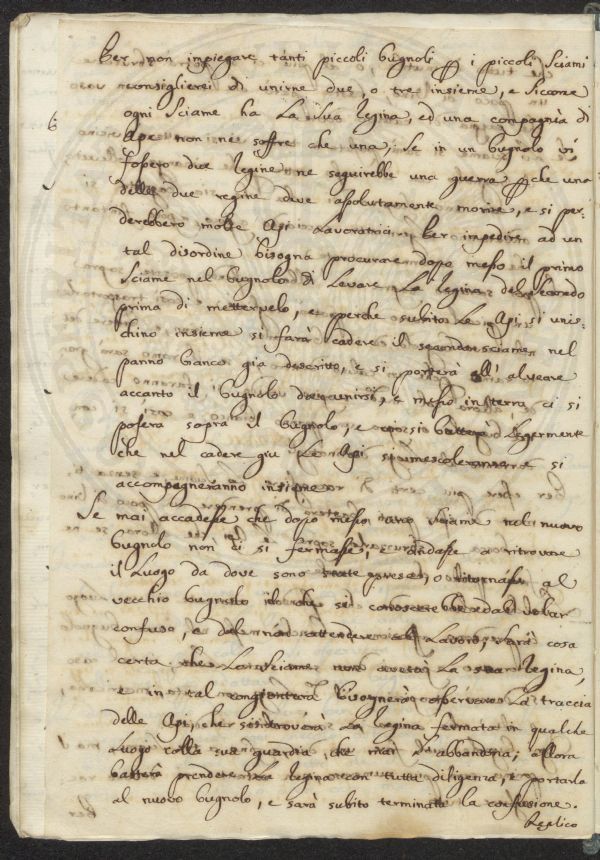 Per non impiegare tanti piccoli bugnoli p i piccoli sciami
consiglierei di unirne due, o tre insieme, e siccome
ogni sciame ha la sua Regina, ed una compagnia di
6
Ape non ne soffre che una, se in un bugnolo vi
fossero due Regine ne seguirebbe una guerra pche una
delle due regine deve assolutamente morire, e si per-
derebbero molte Api lavoratrici. Per impedire ad un
tal disordine bisogna procurare dopo messo il primo
sciame nel bugnolo di levare la Regina del secondo
prima di mettervelo, e perche subito le Api si unis-
chino insieme si farà cadere il secondo sciame nel
panno bianco già descritto, e si porterà all' alveare
accanto il bugnolo da unirsi, e messo in terra ci si
poserà sopra il bugnolo, e poi si batterà legermente
che nel cadere giu le Api si mescoleranno e si
accompagneranno insieme.
Se mai accadesse che dopo messo uno sciame nel nuovo
bugnolo non ci si fermasse, o andasse a ritrovare
il luogo da dove sono state prese, o ritornasse al
vecchio bugnolo il che si conoscerebbe dal
confuso, e dal non attendere al lavoro, sarà cosa
certa, che lo sciame non averà la sua Regina,
e in tal congiontura bisognerà osservare la traccia
delle Api, che si troverà la Regina fermata in qualche
luogo colla sua guardia, che mai l'abbandona; allora
basterà prendere la Regina con tutta diligenza, e portarla
al nuovo bugnolo, e sarà subito terminata la confusione.
Replico